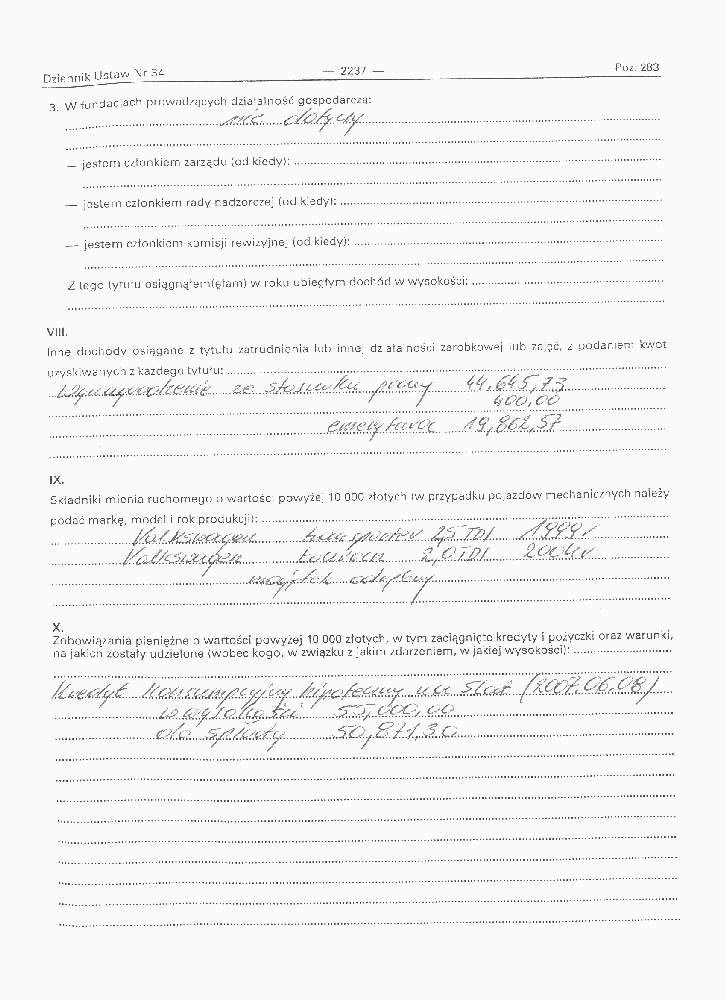 Dziennik Ustaw Nr 34 — 2237 — Poz. 283
3. W fundacjach prowadzących działalność gospodarczą:
nie dotyczy
— jestem członkiem zarządu (od kiedy):
— jestem członkiem rady nadzorczej (od kiedy):
— jestem członkiem komisji rewizyjnej (od kiedy):
Z tego tytułu osiągnąłem(ęłam) w roku ubiegłym dochód w wysokości:
VIII.
Inne dochody osiągane z tytułu zatrudnienia lub innej działalności zarobkowej lub zajęć, z podaniem kwot
uzyskiwanych z każdego tytułu:
Wynagrodzenie ze stosunku pracy 44,645,73
400,00
emerytura 19,862,57
IX.
Składniki mienia ruchomego o wartości powyżej 10 000 złotych (w przypadku pojazdów mechanicznych należy
podać markę, model i rok produkcji):
Volkswagen transporter 2,5 TDI 1999 r
Volkswagen touran 2,0 TDI 2004 r
majątek odrębny
X.
Zobowiązania pieniężne o wartości powyżej 10 000 złotych, w tym zaciągnięte kredyty i pożyczki oraz warunki,
na jakich zostały udzielone (wobec kogo, w związku z jakim zdarzeniem, w jakiej wysokości):
Kredyt konsumpcyjny hipoteczny (2007.06.08)
w wysokości 55,000,00
do spłaty 50,871,30